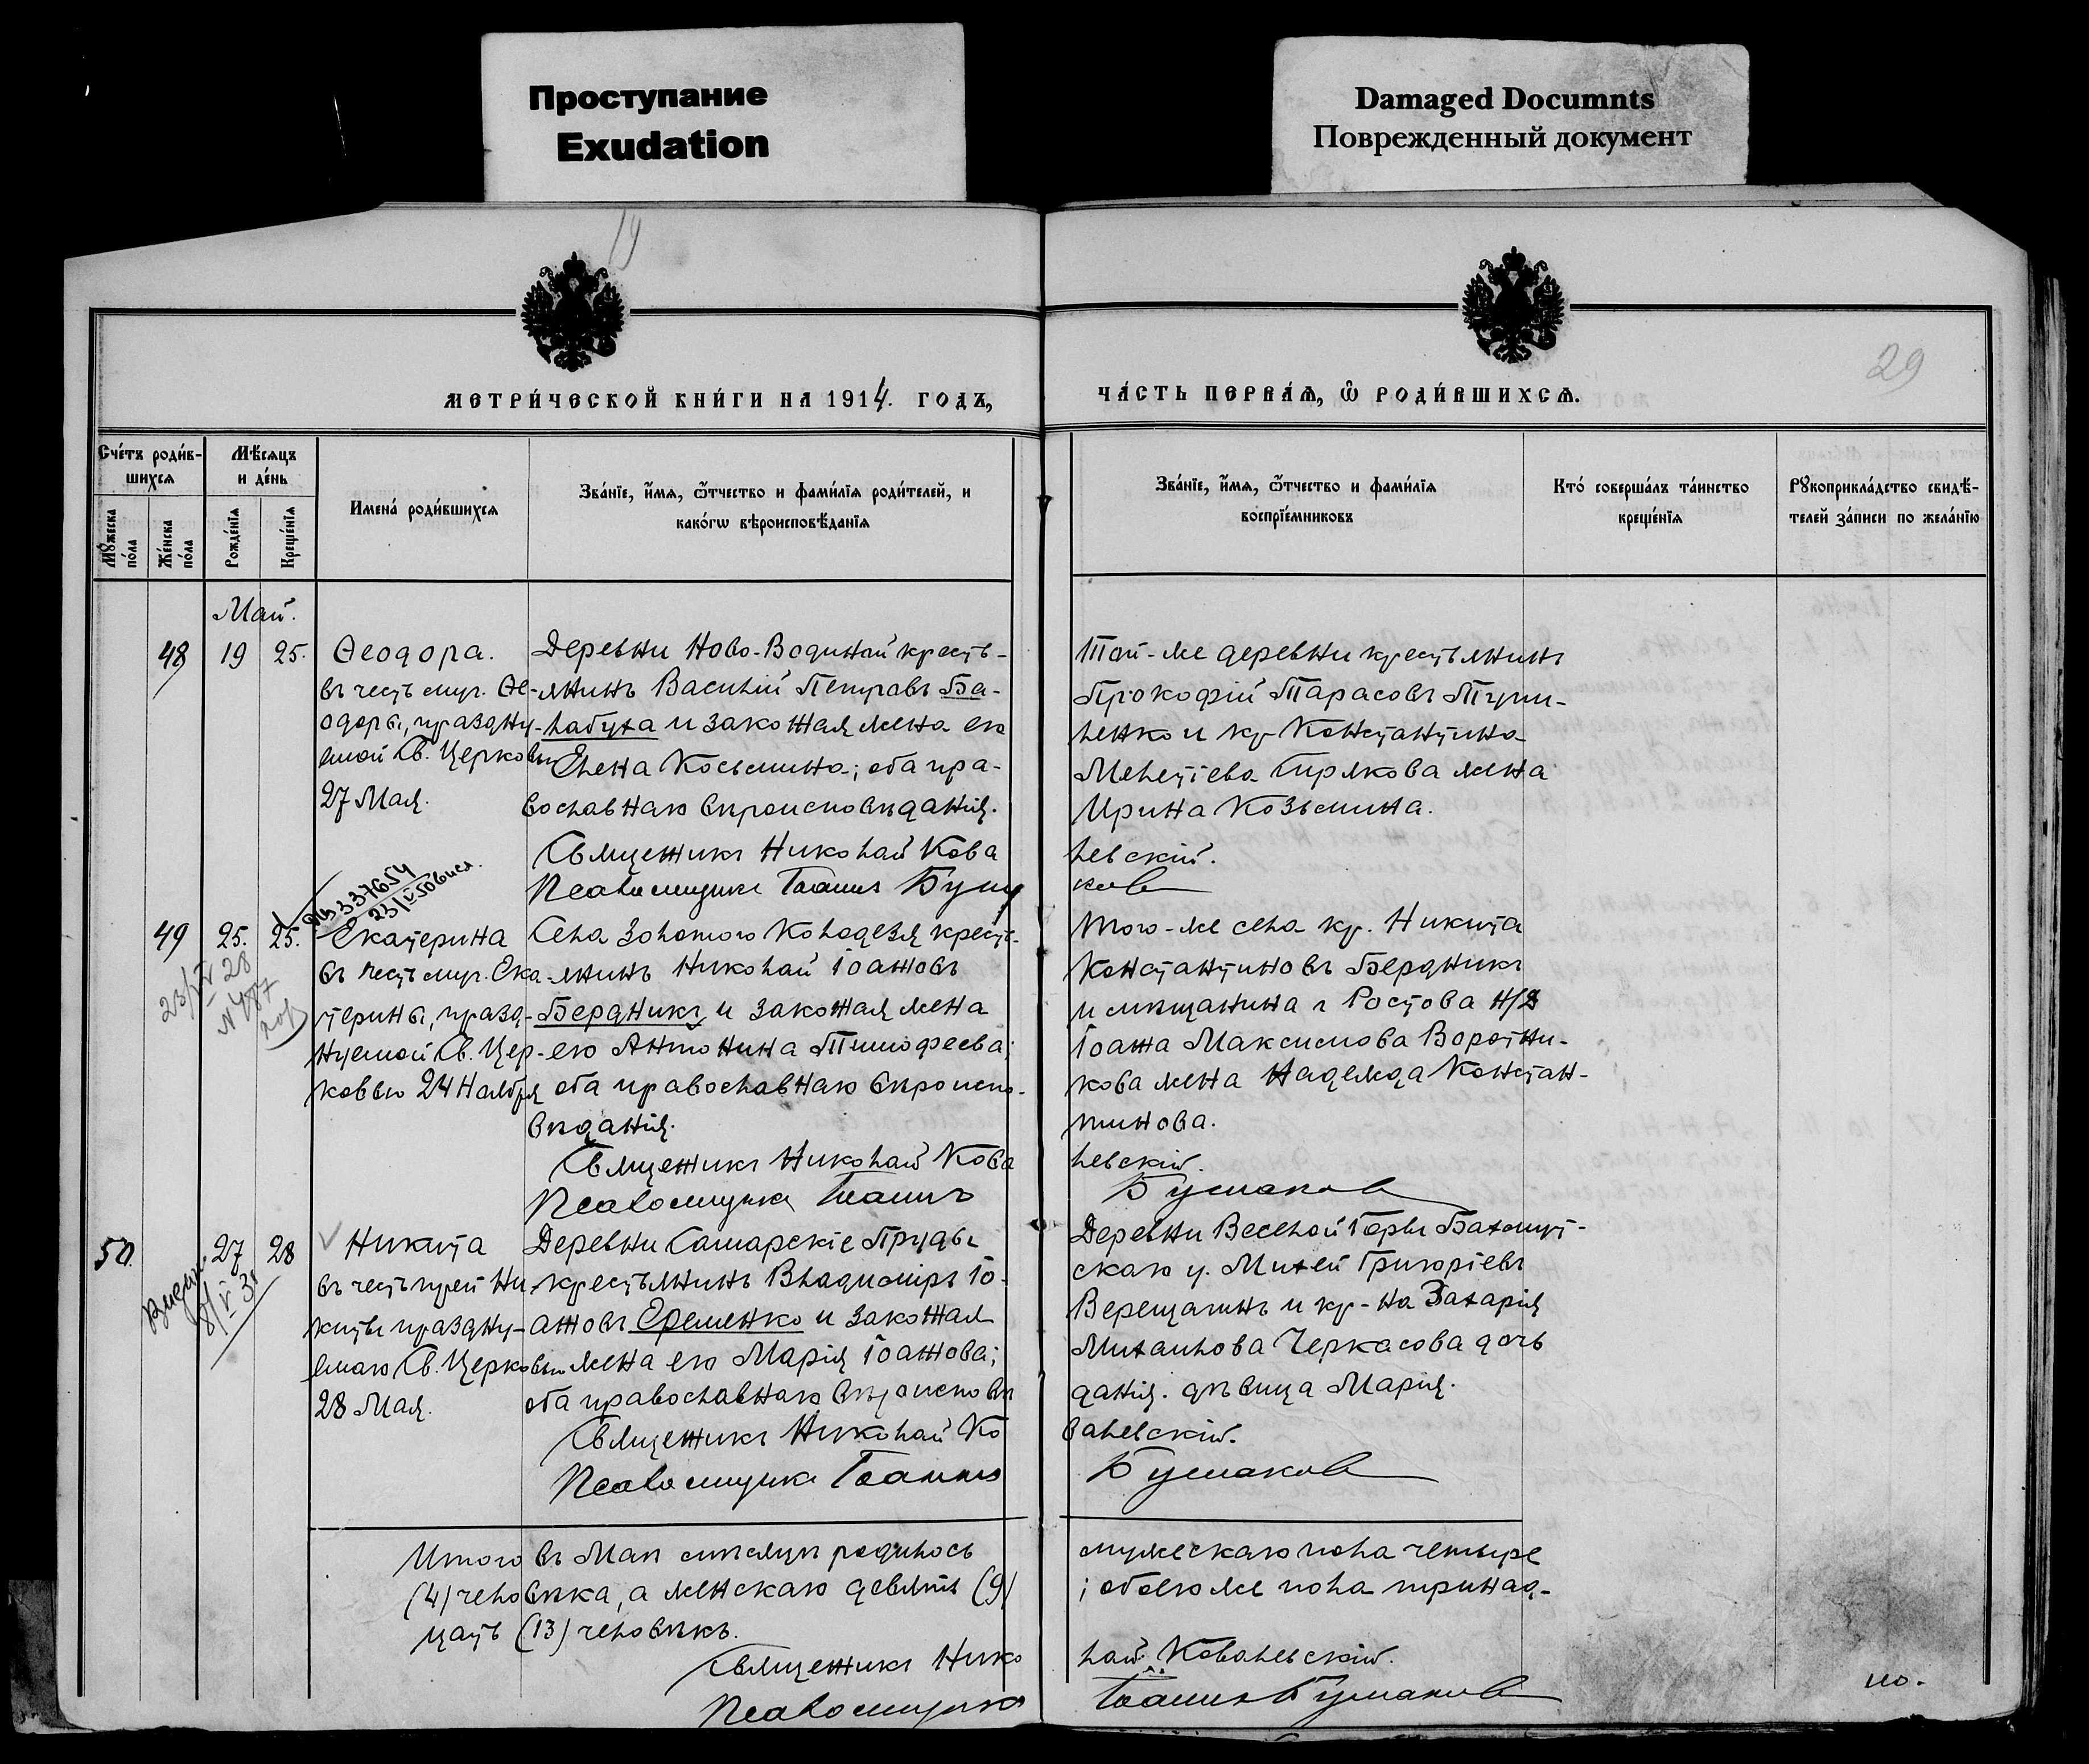 Проступание
Exudation
Damaged Documnts
Поврежденный документ
29
МЕТРИ́ЧЕСКОЙ КНИ́ГИ НА 1914. ГОДЪ,
ЧА́СТЬ ПЕРВАѦ, Ѡ҆ РОДИ́ВШИХСѦ.
Сче́тъ роди́в-
шихсѧ
Мꙋ́жеска по́ла
Же́нска по́ла
Мѣ́сѧцъ
и де́нь
Рожде́нїѧ
Креще́нїѧ
Имена̀ роди́вшихсѧ
Зва́нїе, и҆́мѧ, ѻ҆́тчество и фами́лїѧ роди́телей, и
како́гѡ вѣроисповѣ́данїѧ
Зва́нїе, и҆́мѧ, ѻ҆́тчество и фами́лїѧ
воспрїе́мниковъ
Кто̀ соверша́лъ та́инство
креще́нїѧ
Рꙋкоприкла́дство свидѣ́-
телей за́писи по жела́нїю
Май.
48 19 25.
Ѳеодора.
въ честь муч. Ѳе-
одоры, праздну-
емой Св. Церковью
27 Мая.
Деревни Ново-Водиной кресть-
янинъ Василій Петровъ Ба-
лабуха и законная жена его
Елена Косьмина; оба пра-
вославнаго вѣроисповѣданія.
Той-же деревни крестьянинъ
Прокофій Тарасовъ
и кр Константина
жена
Ирина Козьмина.
Священникъ Николай Ковалевскій.
Псаломщикъ Іоаннъ Бушмаков
№ 337654
49 25. 25.
Екатерина
въ честь муч. Ека-
терины, празд-
нуемой Св. Цер-
ковью 24 Ноября
Села Золотого Колодезя кресть-
янинъ Николай Іоанновъ
Бердникъ и законная жена
его Антонина Тимофеева;
оба православнаго вѣроиспо-
вѣданія.
Того-же села кр. Никита
Константиновъ Бердникъ
и мѣщанина г Ростова Н/Д
Іоанна Максимова Воротни-
кова жена Надежда Констан-
тинова.
Священникъ Николай Ковалевскій.
Псаломщикъ Іоаннъ Бушмаков
50. 27 28
Никита
въ честь преп Ни-
киты праздну-
емаго Св. Церковью
28 Мая.
Деревни Самарскіе Пруды
крестьянинъ Владиміръ Іо-
анновъ Еременко и законная
жена его Марія Іоаннова;
оба православнаго вѣроисповѣ
данія.
Деревни Веселой Горы Бахмут-
скаго у. Михей Григорьевъ
Верещагинъ и кр-на Захарія
Михаилова Черкасова дочь
дѣвица Марія.
Священникъ Николай Ковалевскій.
Псаломщикъ Іоаннъ Бушмаков
Итого въ Маѣ мѣсяцѣ родилось мужескаго пола четыре
(4) человѣка, а женскаго девять (9) ; обоего же пола тринад-
цать (13) человѣкъ.
Священникъ Николай Ковалевскій.
Псаломщикъ Іоаннъ Бушмаков